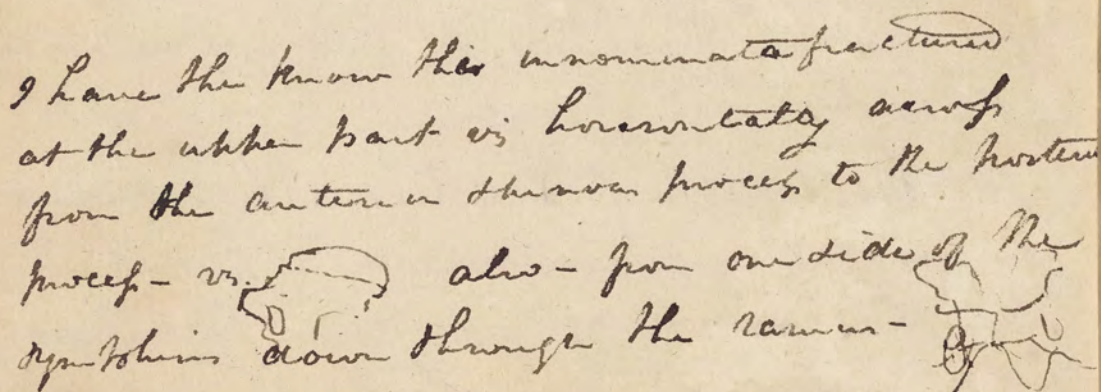 I have the know the innominata fractured
at the upper part viz horozontaly across
from the anterior spinous process to the posteri
process – viz also – from one side of the
symphisis down through the ramus –